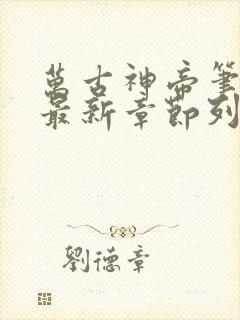 萬古神帝筆
最新章節列
劉德章